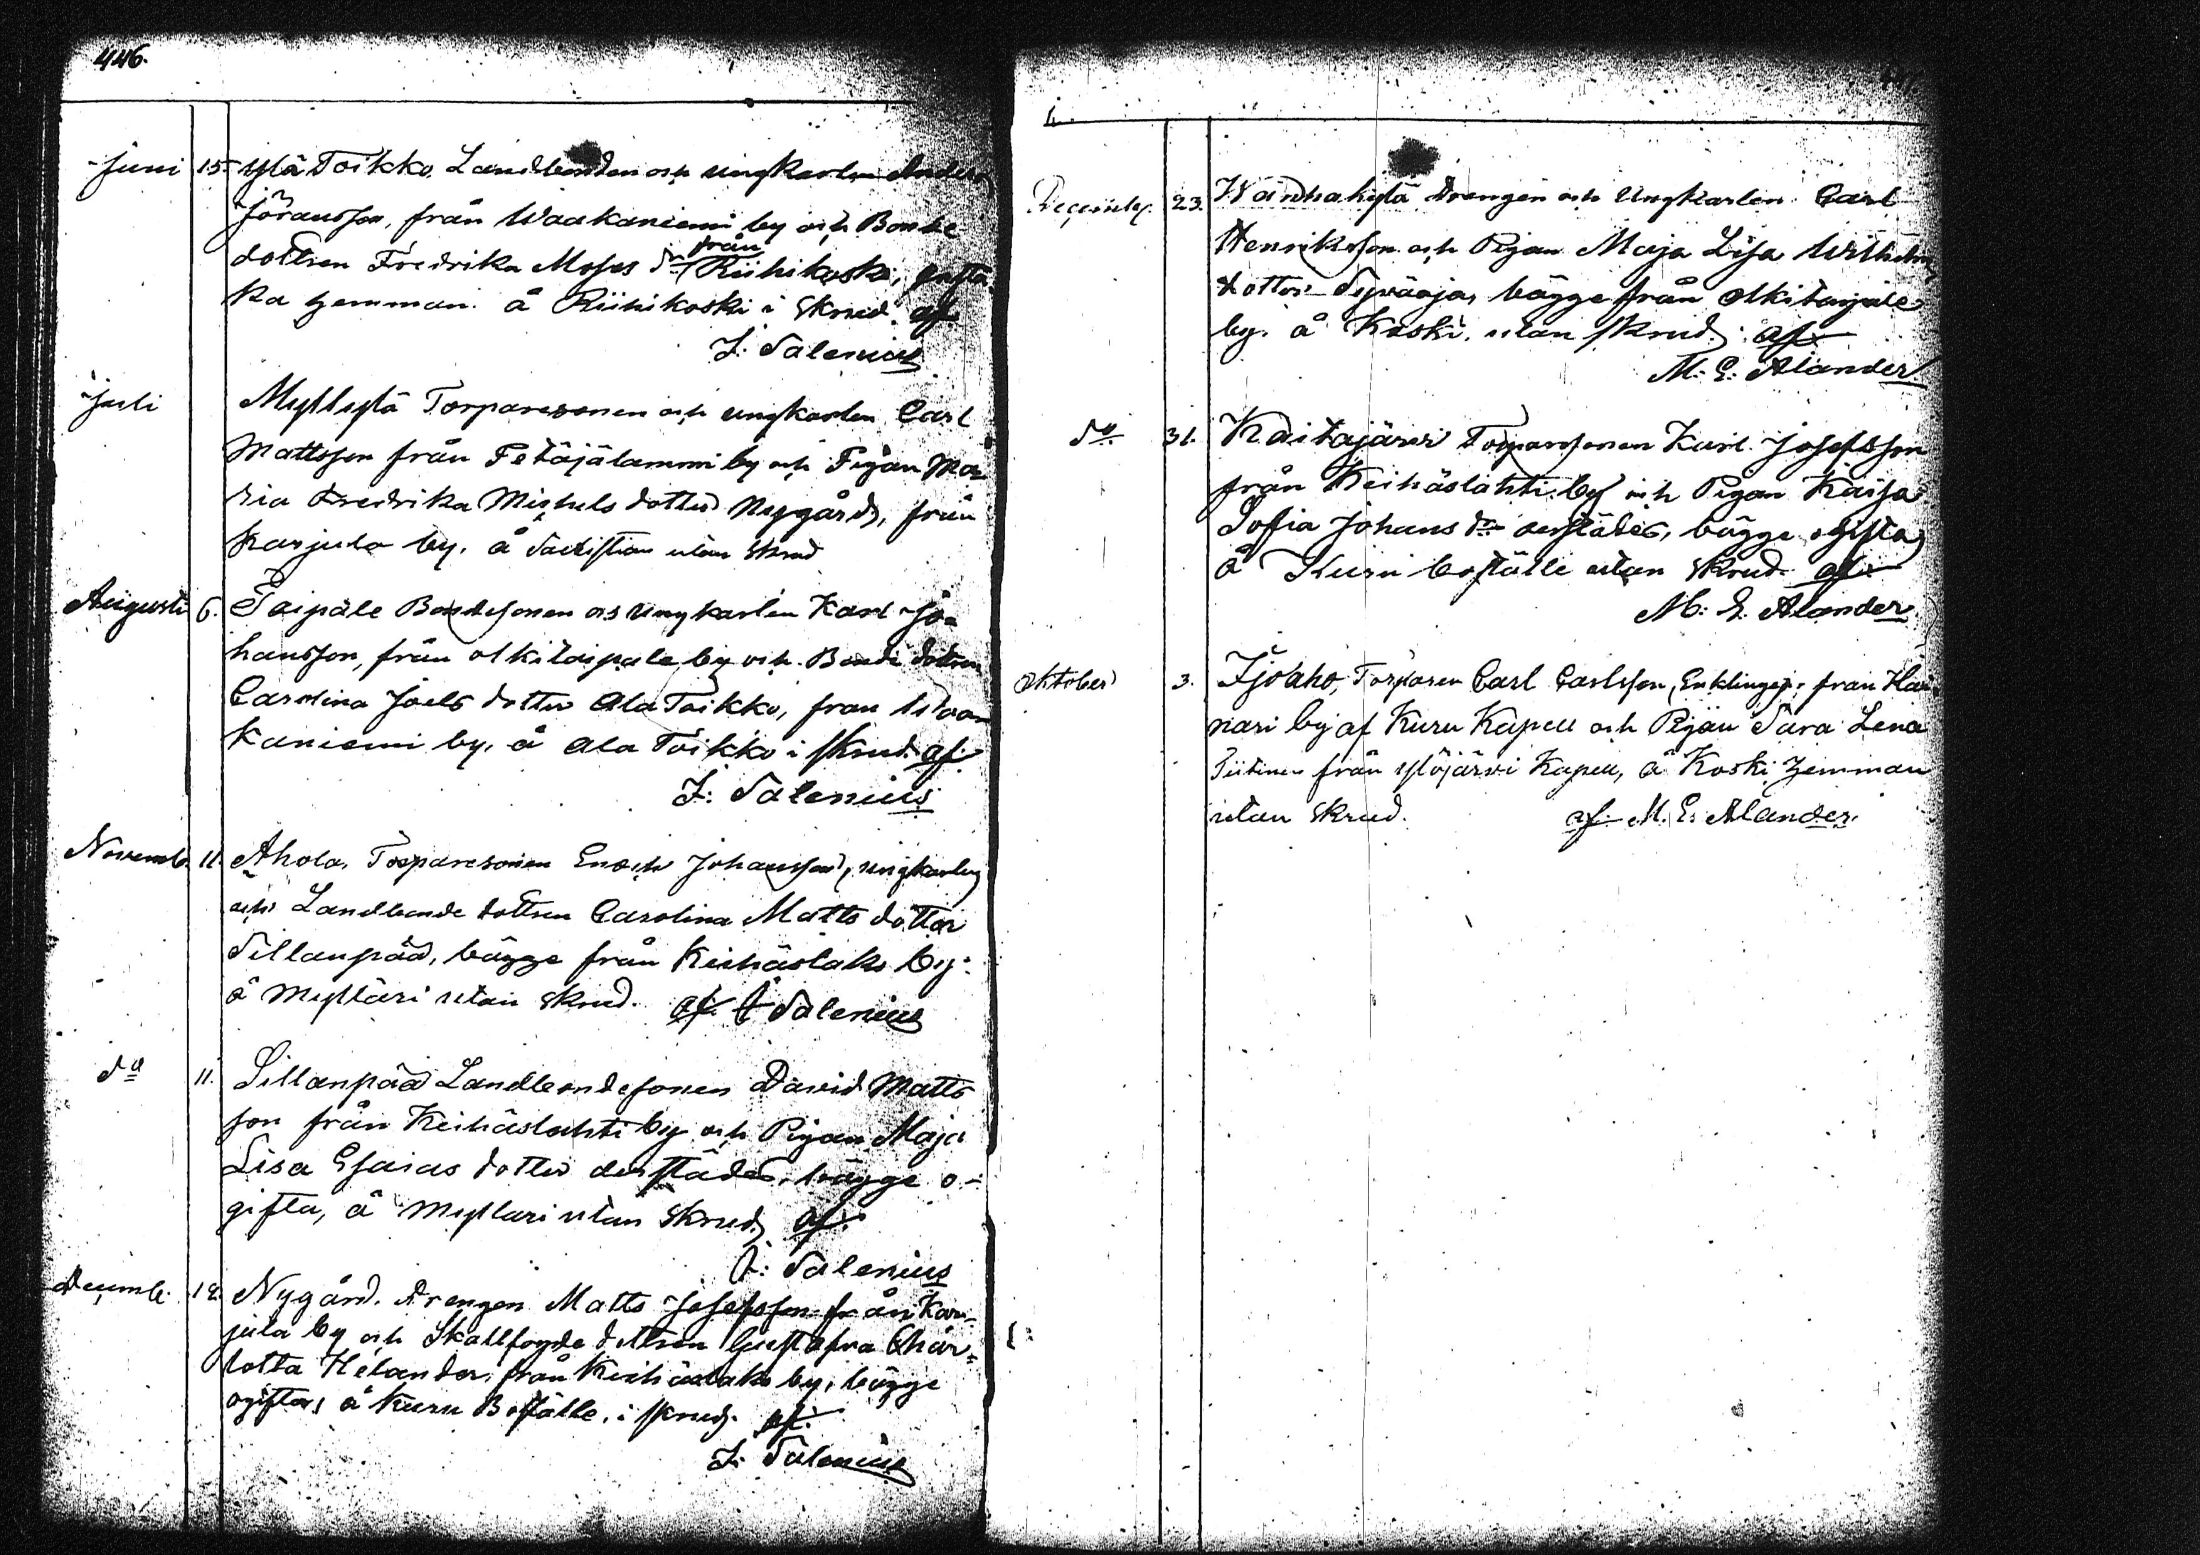 446.
Juni 15. Ylä Toikko. Landbonden och ungkarlen Anders
Jöransson, från Waakaniemi by och Bonde
från
dottren Fredrika Moses dr Riihikoski,
ka hemman å Riihikoski i skrud. af
J: Salenius
Juli Myllylä Torparesonen och ungkarlen Carl
Mattsson från Petäjälammi by och Pigan Ma
ria Fredrika Michels dotter Nygård, från
Karjula by. å utan skrud
Augusti 6. Taipale Bondesonen och ungkarlen Karl Jo-
hansson, från Olkitaipale by och Bonde dottren
Carolina Joels dotter Ala Toikko, från Waa
kaniemi by, å Ala Toikko i skrud. af
J: Salenius
Novemb. 11. Ahola. Torparesonen Enoch Johansson, ungkarlen
och Landbonde dottren Carolina Matts dotter
Sillanpää, bägge från Keihäslaks by.
å Mylläri utan skrud. af J Salenius
do 11. Sillanpää Landbondesonen David Matts
son från Keihäslahti by och Pigan Maja
Lisa Esaias dotter derstädes, bägge o-
gifta, å Myllari utan skrud, af.
J: Salenius
Decemb. 12. Nygård. Drengen Matts Josefsson från Kar-
jula by och Skallfogde dottren Gustafva Char-
lotta Helander, från Keihäslaks by, bägge
ogifta, å Kuru Boställe, i skrud. af.
J: Salenius
Decemb. 23. Wanhakylä Drengen och Ungkarlen Carl
Henriksson och Pigan Maja Lisa Wilhelms
dotter Sepänoja, bägge från Olkitaipale
by. å Koski. utan skrud. af
M: E: Alander
do. 31. Kaitajärvi Torparesonen Karl Josefsson
från Keihäslahti by och Pigan Kaisa
Sofia Johans dr derstädes, bägge ogifta
å Kuru boställe utan skrud. af
M: E. Alander
Oktober 3. Isoaho, Torparen Carl Carlsson, Enklinge, från
by af Kuru Kapell och Pigan Sara Lena
Tiitinen från Ylöjärvi Kapell, å Koski hemman
utan skrud. af M. E. Alander.